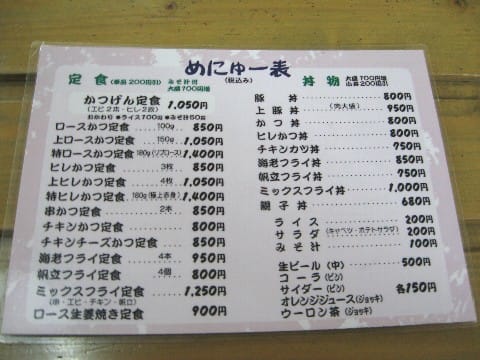 めにゅー表
(税込み)
定食(単品200円引) みそ汁付
大盛100円増
かつげん定食
(エビ2本・ヒレ2枚) 1,050円
おかわり ●ライス100円 ●みそ汁50円
ロースかつ定食 100g 850円
上ロースかつ定食 150g 1,050円
特ロースかつ定食 180g(リブロース) 1,400円
ヒレかつ定食 3枚 850円
上ヒレかつ定食 4枚 1,050円
特ヒレかつ定食 180g(極上赤身) 1,400円
串かつ定食 2本 850円
チキンかつ定食 800円
チキンチーズかつ定食 850円
海老フライ定食 4本 950円
帆立フライ定食 4個 800円
ミックスフライ定食 1,250円
(串・エビ・チキン・帆立)
ロース生姜焼き定食 900円
丼物 大盛100円増
200円引
豚丼 800円
上豚丼 (肉大盛) 950円
かつ丼 800円
ヒレかつ丼 950円
チキンカツ丼 850円
海老フライ丼 850円
帆立フライ丼 850円
ミックスフライ丼 1,000円
親子丼 680円
ライス 200円
サラダ (キャベツ・ポテトサラダ) 200円
みそ汁 100円
生ビール(中) 500円
コーラ(ビン)
サイダー(ビン) 各150円
オレンジジュース(ジョッキ)
ウーロン茶(ジョッキ)